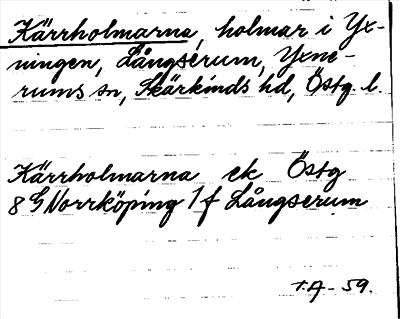 Kärrholmarna, holmar i Yx-
ningen, Långserum, Yxne-
rums sn, Skärkinds hd, Östg. l.
Kärrholmarna ek Östg
8 G Norrköping 1 f Långserum
T.A- 59.